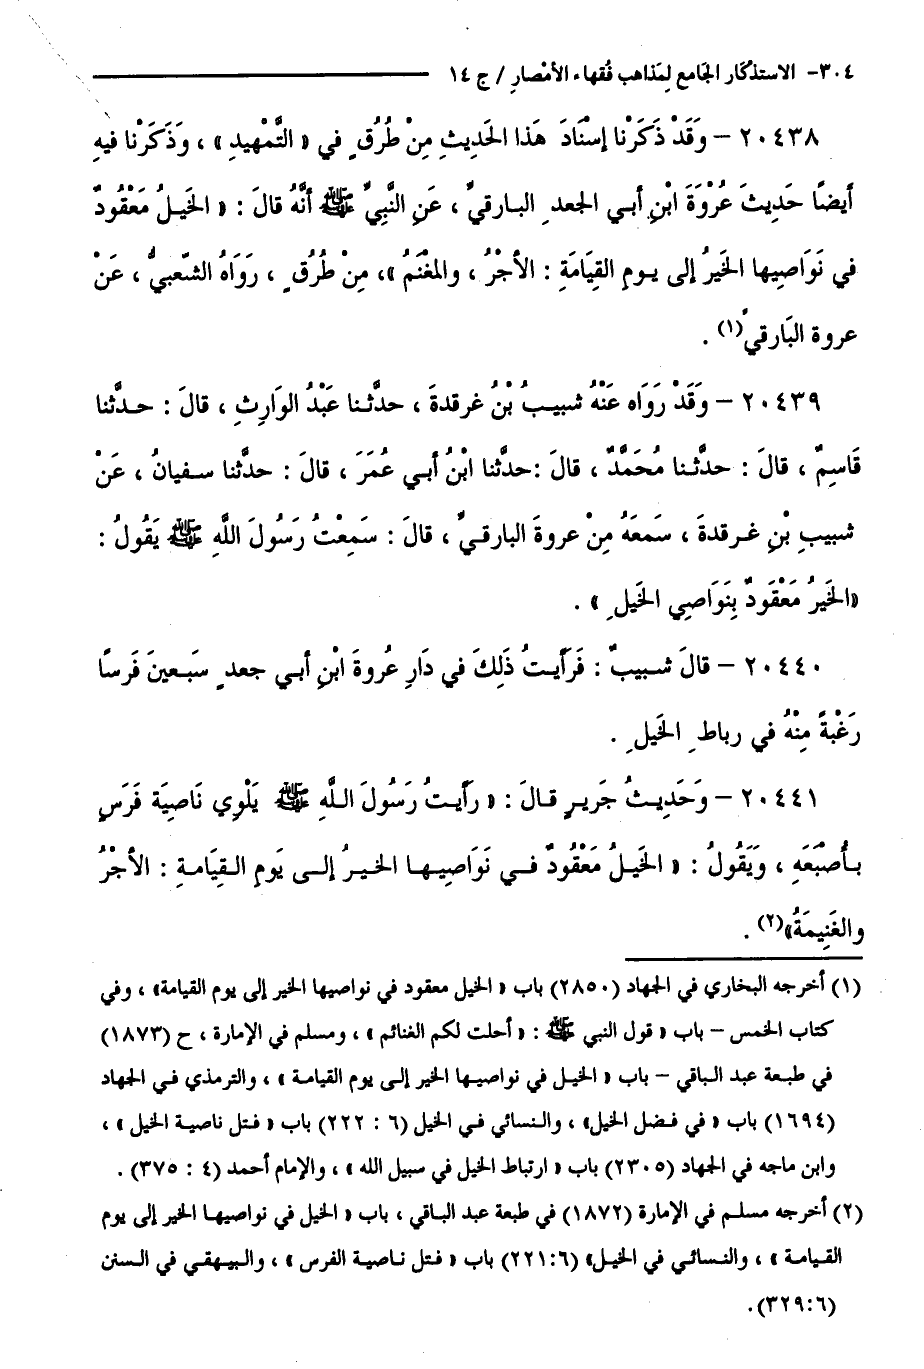 ٣٠٤- الاستذكار الجَامع لِمَذاهب فُقهاء الأمْصارِ / ج ١٤
٢٠٤٣٨ – وَقَدْ ذَكَرْنا إسْنَادَ هَذا الحَديثِ مِنْ طُرُقٍ في « التَّمْهيدِ » ، وَذَكَرْنا فيهِ
أيضًا حَديثَ عُرْوَةَ ابْنِ أبي الجعدِ البارقيِّ ، عَنِ النَّبيِّ ﷺ أنَّهُ قالَ : « الخَيلُ مَعْقُودٌ
في نَوَاصِيها الخَيرُ إلى يومِ القِيَامَةِ : الأجْرُ ، والمَغْنَمُ »، مِنْ طُرُقٍ ، رَوَاهُ الشّعبيُّ ، عَنْ
عروة البَارقيِّ(١) .
٢٠٤٣٩ – وَقَدْ رَوَاه عَنْهُ شَبيبُ بْنُ غرقدةَ ، حدثَّنا عَبْدُ الوَارِثِ ، قالَ : حدثّنا
قَاسِمٌ ، قالَ : حدثَّنا مُحَمَّدٌ ، قالَ :حدثَّنا ابْنُ أبي عُمَرَ ، قالَ : حدثَّنا سفيانُ ، عَنْ
شبيبِ بْنِ غرقدةَ ، سَمعَهُ مِنْ عروةَ البارقيِّ ، قالَ : سَمِعْتُ رَسُولَ اللَّهِ ﷺ يَقُولُ :
«الخَيرُ مَعْقَودٌ بِنَوَاصِي الخَيلِ » .
٢٠٤٤٠ – قالَ شبيبٌ : فَرَأيتُ ذَلِكَ في دَارِ عُروةَ ابْنِ أبي جعدٍ سَبعينَ فَرسًا
رَغْبةً مِنْهُ في رباطِ الخَيلِ .
٢٠٤٤١ – وَحَديثُ جَريرٍ قالَ : « رأيتُ رَسُولَ اللَّهِ ﷺ يَلْوِي نَاصِيَة فَرَسٍ
بأُصْبَعَهِ ، وَيَقُولُ : « الخَيلُ مَعْقُودٌ في نَوَاصِيها الخيرُ إلى يَومِ القِيَامةِ : الأجْرُ
والغَنِيمَةُ»(٢) .
(١) أخرجه البخاري في الجهاد (٢٨٥٠) باب « الخيل معقود في نواصيها الخير إلى يوم القيامة» ، وفي
كتاب الخمس – باب « قول النبي ﷺ : « أحلت لكم الغنائم » ، ومسلم في الإمارة ، ح (١٨٧٣)
في طبعة عبد الباقي – باب « الخيل في نواصيها الخير إلى يوم القيامة » ، والترمذي في الجهاد
(١٦٩٤) باب « في فضل الخيل» ، والنسائي في الخيل (٦ : ٢٢٢) باب « فتل ناصية الخيل » ،
وابن ماجه في الجهاد (٢٣٠٥) باب « ارتباط الخيل في سبيل الله » ، والإمام أحمد (٤ : ٣٧٥) .
(٢) أخرجه مسلم في الإمارة (١٨٧٢) في طبعة عبد الباقي ، باب « الخيل في نواصيها الخير إلى يوم
القيامة » ، والنسائي في الخيل» (٢٢١:٦) باب « فتل ناصية الفرس » ، والبيهقي في السنن
(٣٢٩:٦).